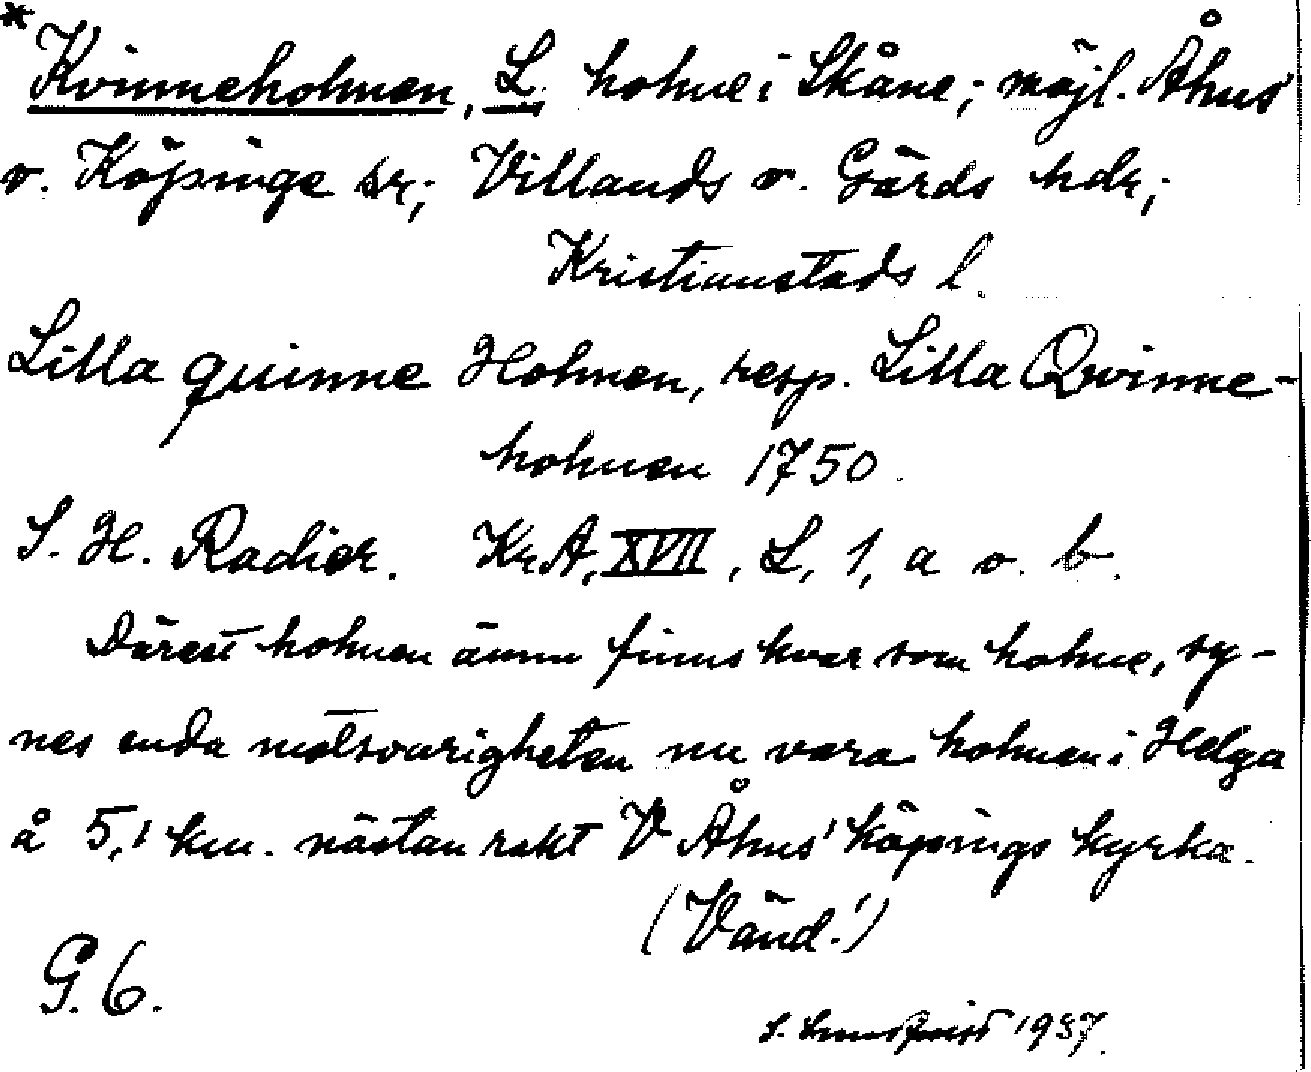 * Kvinneholmen, L. holme i Skåne; möjl. Åhus
o. Köpinge sr; Villands o. Gärds hdr;
Kristianstads l.
Lilla quinne Holmen, resp. Lilla Qvinne-
holmen 1750.
S. H. Radier. KrA, XVII, L, 1, a o. b.
Därest holmen ännu finns kvar som holme, sy-
nes enda motsvarigheten nu vara holmen i Helga
å 5,1 km. nästan rakt V Åhus' köpings kyrka.
(Vänd!)
G. 6.
S. 1937.